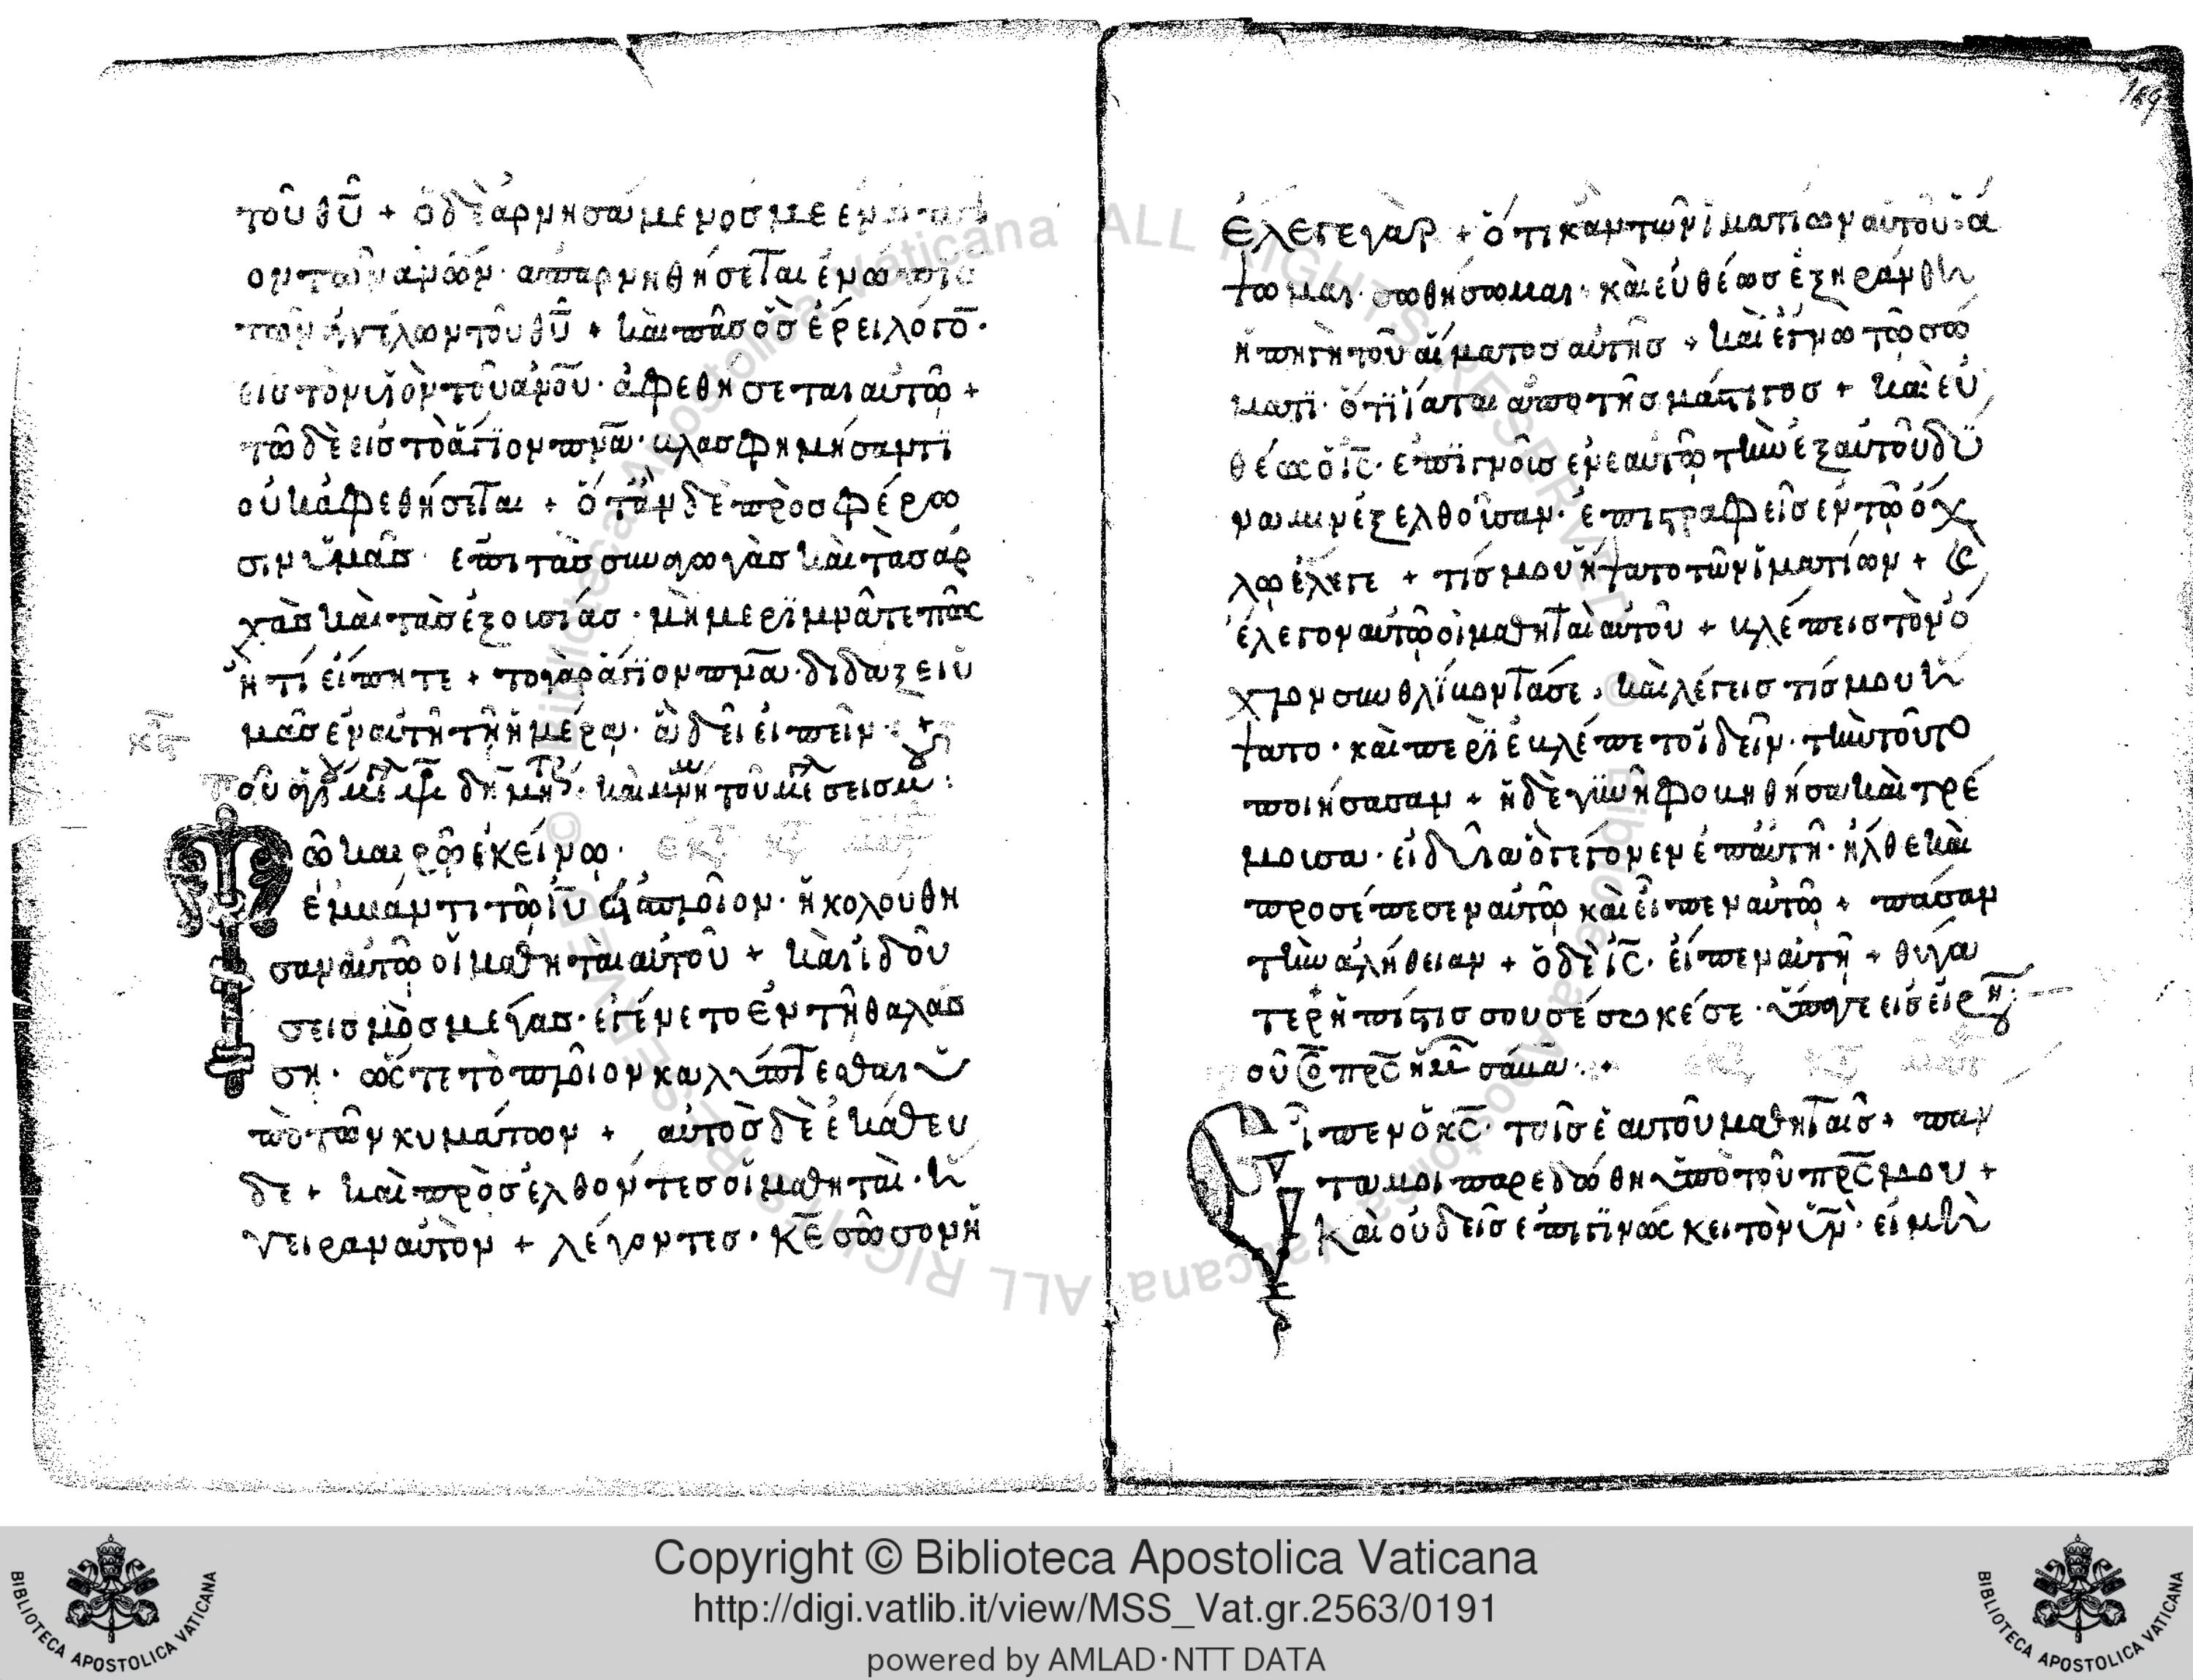 τοῦ θῦ + ὁ δὲ ἀρνησάμενος με
ἀπαρνηθήσεται ἐνώπϊο
τοῦ θῦ + καὶ πᾶς ὃς ἐρεῖ λόγο̅·
εἰς τὸν ϋἱὸν τοῦ ἀνου· ἀφεθήσεται αὐτῶ +
τῶ δὲ εἰς τὸ ἅγϊον πνᾱ· βλασφημήσαντϊ
οὐκ ἀφεθήσεται + ὅταν δὲ προσφέρω
σιν ὑμᾶς ἐπι τὰς συναγωγὰς καὶ τὰς ἀρ
χὰς καὶ τὰς ἐξουσίας· μὴ μερϊμνᾶτε πῶς
ἢ τί εἴπητε + το γὰρ ἅγϊον πνᾱ· διδάξει ὑ
μᾶς ἐν αὐτῆ τῆ ἡμέρα· ἃ δεῖ εἰπεῖν·
τοῦ σεισμ:
ῶ καιρῶ ἐκείνω·
ἐμβάντι τῶ ἰῦ εἰς πλοῖον· ἠκολούθη
σαν αὐτῶ οἱ μαθηταὶ αὐτοῦ + καὶ ἰδοὺ
σεισμὸς μέγας· ἐγένετο ἐν τῆ θαλάσ
ση· ὥστε τὸ πλοῖον καλύπτεσθαι ὑ
πὸ τῶν κυμάτων + αὐτὸς δὲ ἐκάθευ
δε + καὶ προσελθόντες οἱ μαθηταὶ· ἤ
γειραν αὐτὸν + λέγοντες· κε̅ σῶσον ἡ
169
ἔλεγε γὰρ + ὅτι κἂν τῶν ἱματίων αὐτοῦ ἅ
ψωμαι· σωθήσωμαι· καὶ εὐθέως ἐξηράνθη
ἡ πηγὴ τοῦ αἵματος αὐτῆς + καὶ ἔγνω τῶ σώ
ματϊ· ὅτϊ ἴαται ἀπο τῆς μάστιγος + καὶ εὐ
θέως ὁ ἰς̅· ἐπϊγνοὺς ἐν ἑαυτῶ τὴν ἐξ αὐτοῦ δύ
ναμιν ἐξελθοῦσαν· ἐπιστραφεὶς ἐν τῶ ὄχ
λω ἔλεγε + τίς μου ἥψατο τῶν ἱματίων + καὶ
ἔλεγον αὐτῶ οἱ μαθηταὶ αὐτοῦ + βλέπεις τὸν ὄ
χλον συνθλίβοντά σε, καὶ λέγεις τίς μου ἥ
ψατο· καὶ περϊεβλέπετο ἰδεῖν· τὴν τοῦτο
ποιήσασαν + ἡ δὲ γϋνὴ φοβηθῆσα καὶ τρέ
μουσα· εἰδυῖα ὃ γέγονεν ἐπ αὐτῆ· ἦλθε καὶ
προσέπεσεν αὐτῶ καὶ εἶπεν αὐτῶ + πᾶσαν
τὴν ἀλήθειαν + ὁ δὲ ἰς̅· εἶπεν αὐτῆ + θύγα
τερ ἡ πίστις σου σέσωκέ σε· ὕπαγε εἰς εἰρη̅·
ἶπεν ὁ κς̅· τοῖς ἑαυτοῦ μαθηταῖς + παν
τα μοι παρεδόθη ὑπὸ τοῦ πρς̅ μου +
καὶ οὐδεὶς ἐπιγϊνώσκει τὸν ϋν̅· εἰ μὴ
Copyright © Biblioteca Apostolica Vaticana
http://digi.vatlib.it/view/MSS_Vat.gr.2563/0191
powered by AMLAD·NTT DATA
BIBLIOTECA APOSTOLICA VATICANA
BIBLIOTECA APOSTOLICA VATICANA